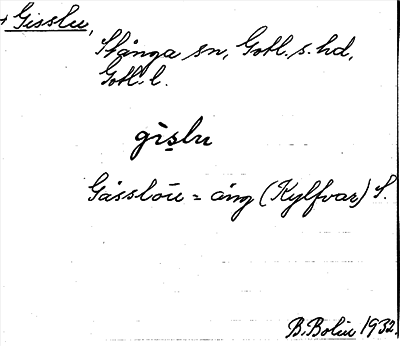 + Gisslu,
Stånga sn, Gotl. s. hd,
Gotl. l.
gi̊ṣlu
Gåsslöu = äng (Kylfvar) S.
B. Bolin 1932.